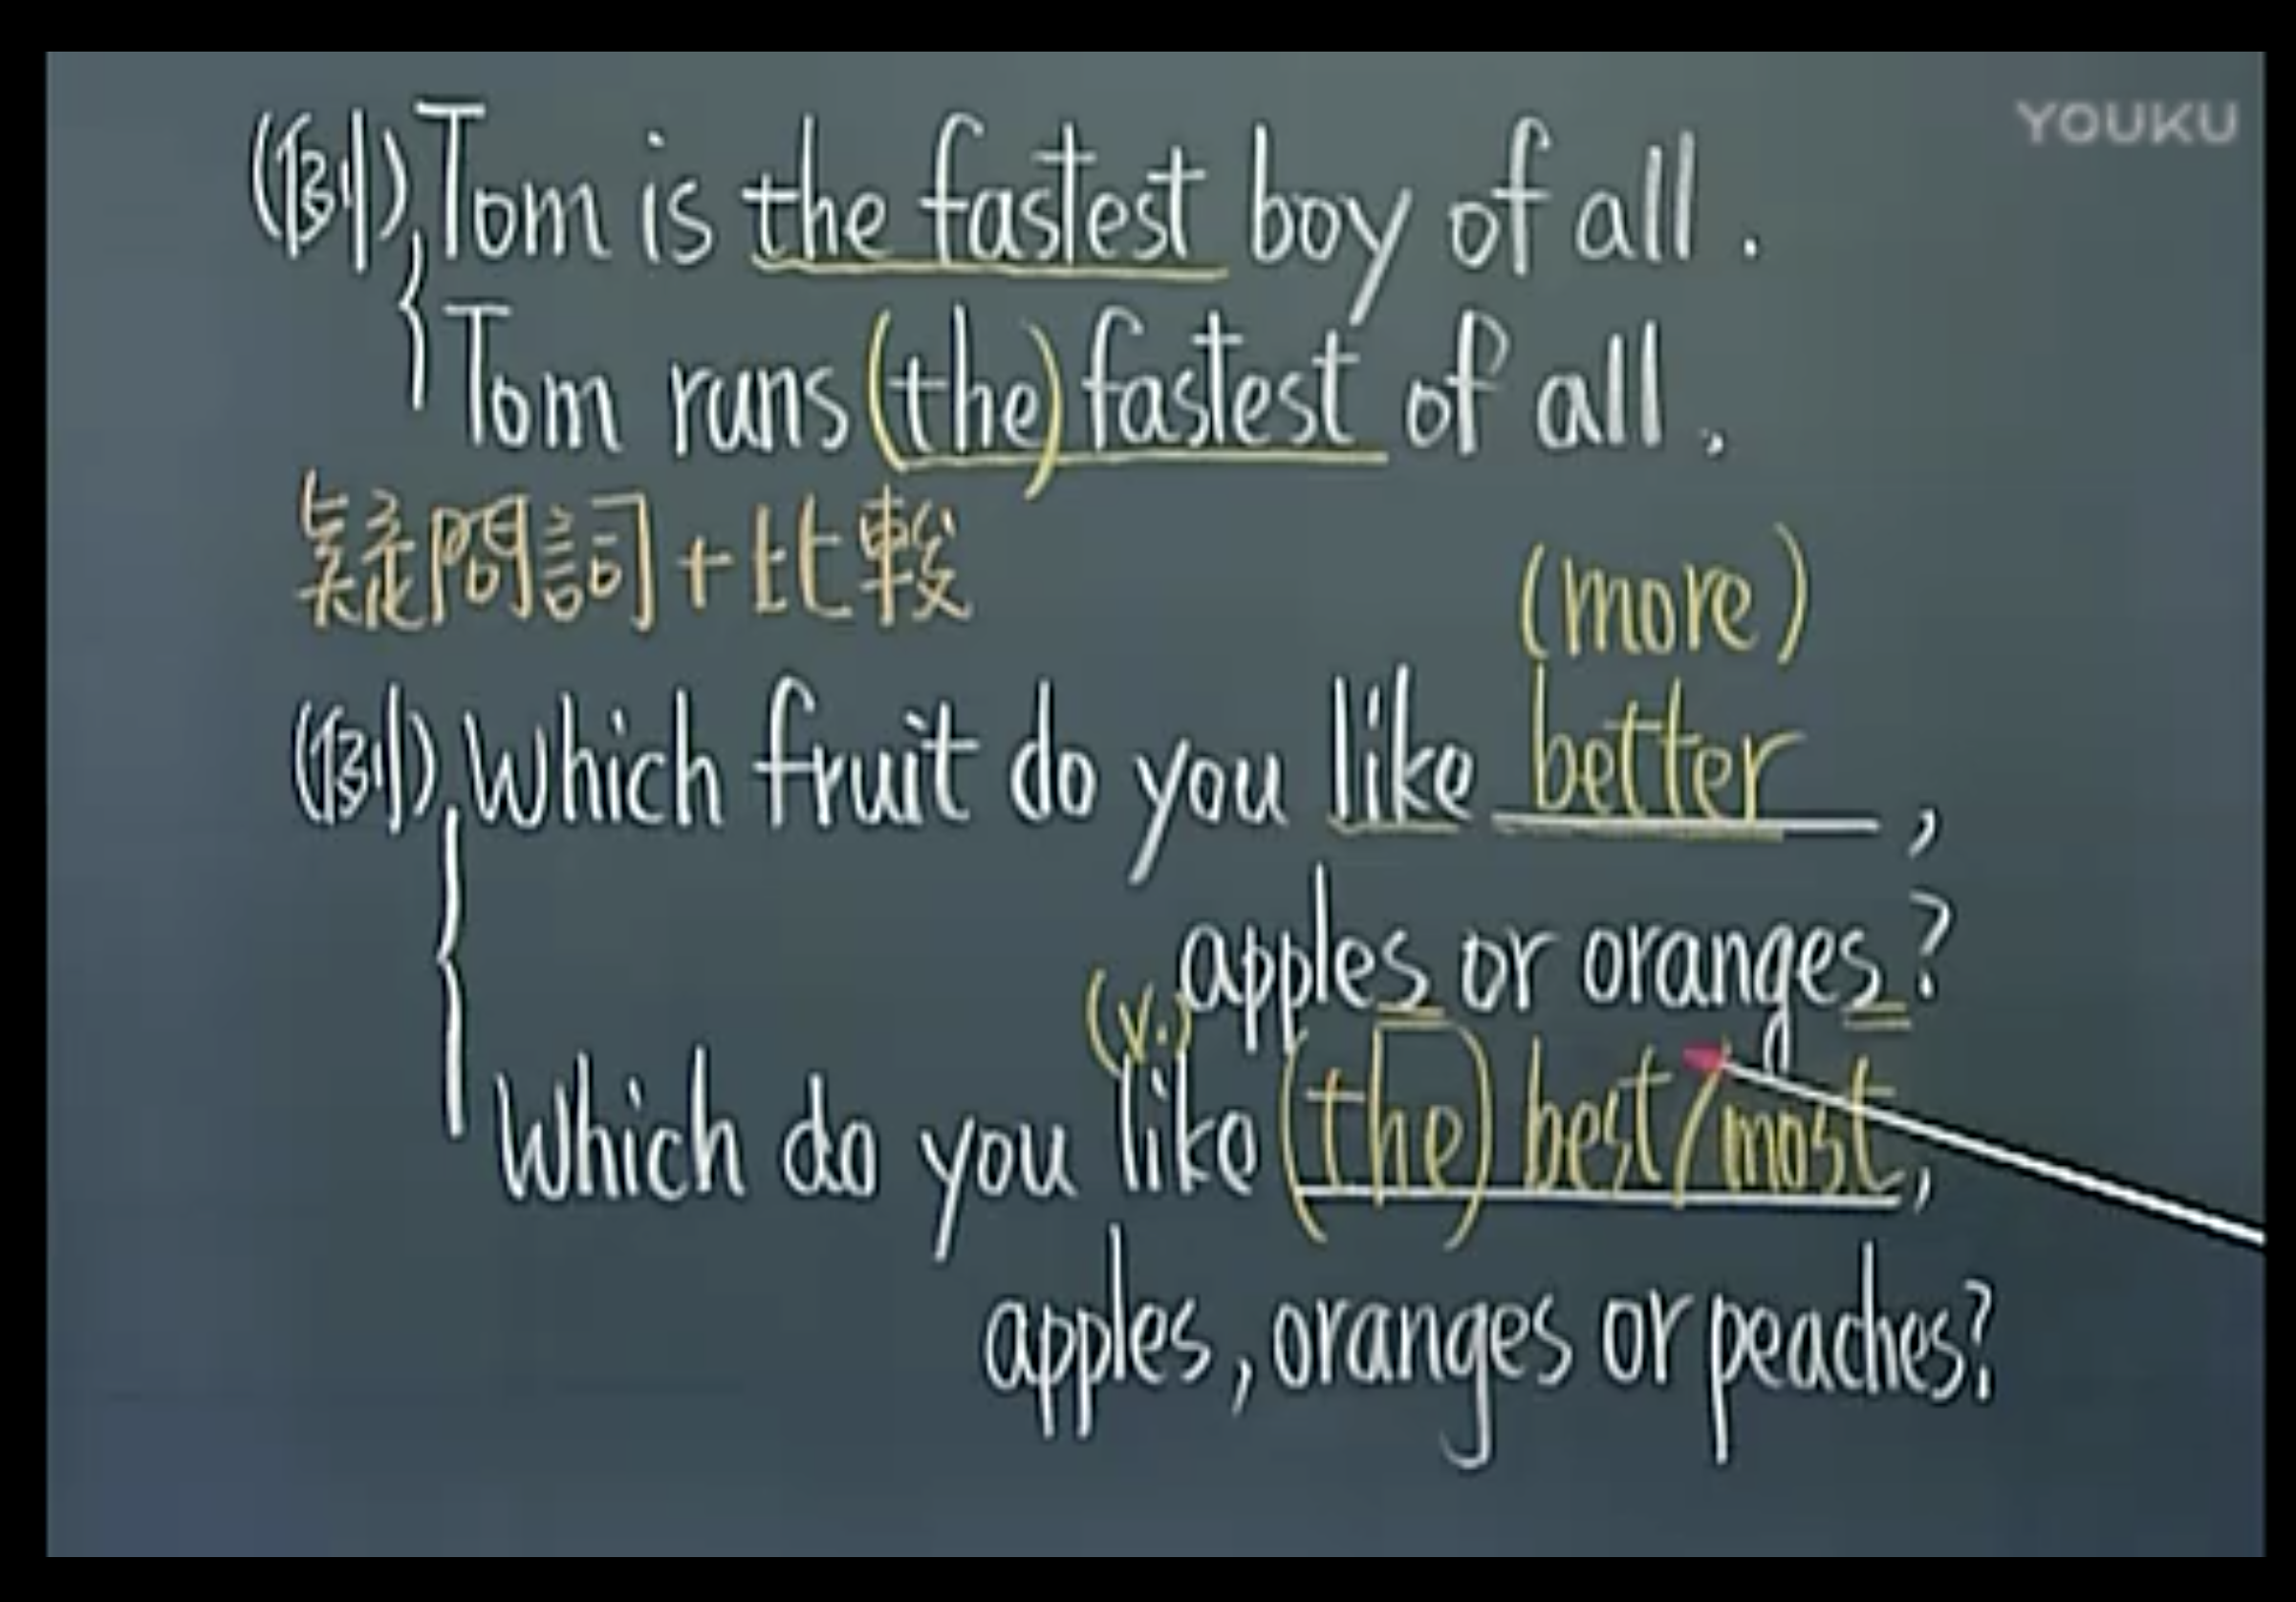 YOUKU
(例) Tom is the fastest boy of all.
Tom runs (the) fastest of all.
疑問詞+比較
(more)
(例) Which fruit do you like better,
apples or oranges?
(v.)
Which do you like (the) best/most,
apples, oranges or peaches?